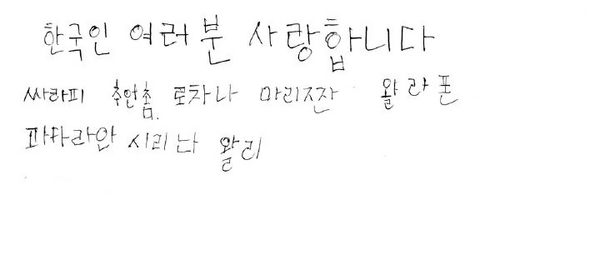 한국인 여러분 사랑합니다
싸라피 추안춤 로차나 마리즈잔 왈라폰
파타라안 시리난 왈리